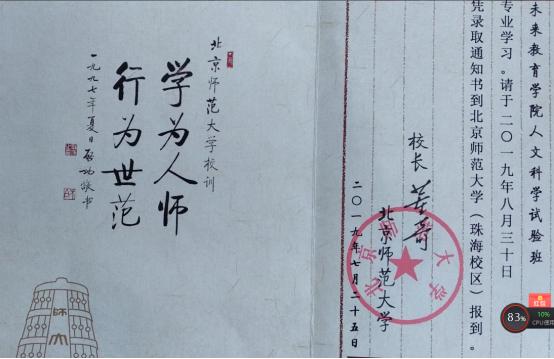 未来教育学院人文科学试验班
专业学习。请于二〇一九年八月三十日
凭录取通知书到北京师范大学（珠海校区）报到。
校长 董奇
北京师范大学
二〇一九年七月二十五日
北京师范大学
北京师范大学校训
学为人师
行为世范
一九九七年夏日启功敬书
师大
83%
10%
CPU使用